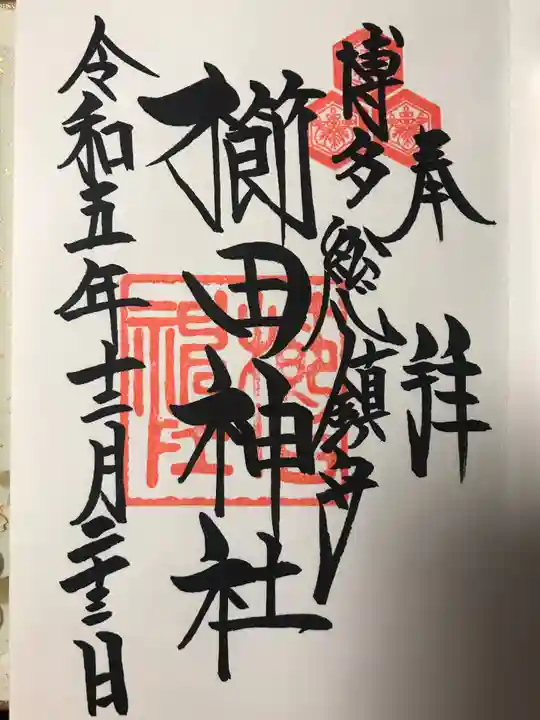 奉拝
博多総鎮守
櫛田神社
令和五年十二月二十三日